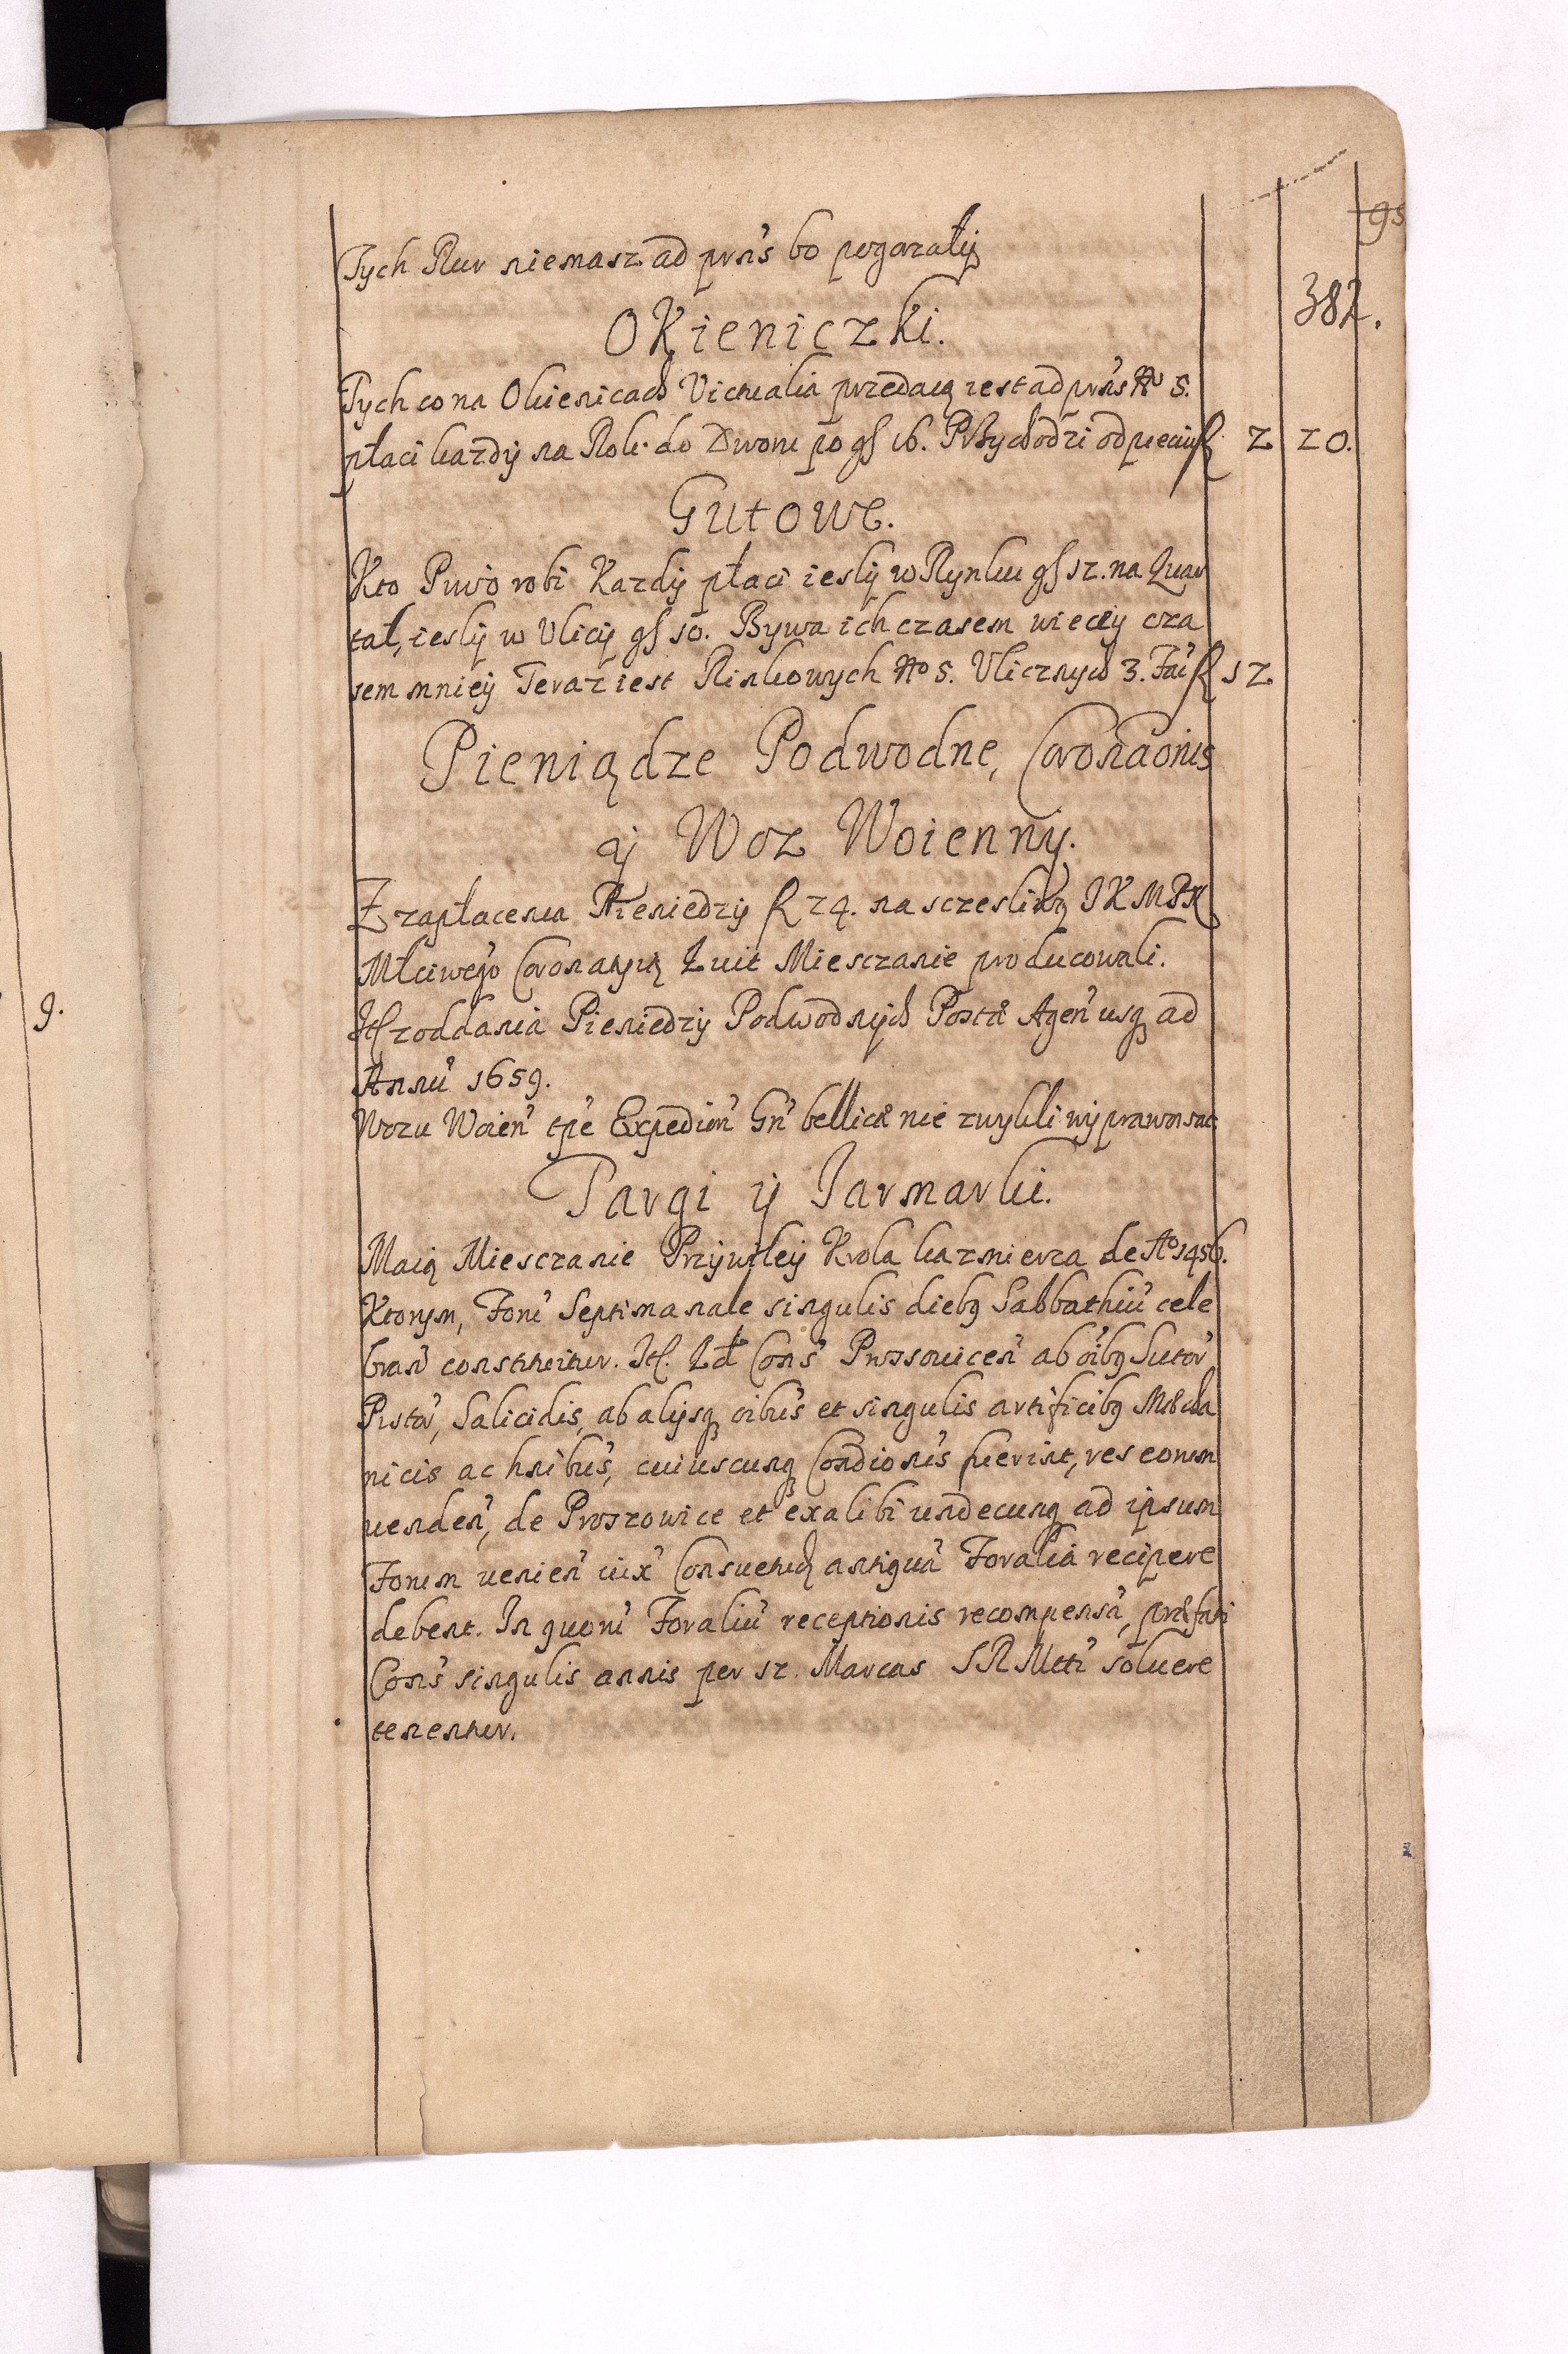 95
382.
Tych Rur niemasz ad prns bo pogorzały
OKieniczki.
Tych co na Okienicach Victualia przedaią iest ad prns No 5.
płaci kazdy na Rok do Dworu po gſ 16. Przychodzi od pięciu f 2 20.
Gutowe.
Kto Piwo robi Kazdy płaci iesly w Rynku gſ 12. na Quar
tał, iesly w Vlicy gſ 10. Bywa ich czasem wiecey cza
sem mniey Teraz iest Rinkowych No 5. Vlicznych 3. Fac f 12
Pieniądze Podwodne, Coronaonis
y Woz Woienny.
Z zapłacenia Pieniedzy f 24. na sczesliwą JKMP
Młciwego Coronatyą Quit Miesczanie producowali.
It z oddania Pieniedzy Podwodnych Postæ Agen usq ad
Annu 1659.
Wozu Woien tpe Expedion Gn bellicæ nie zwykli wyprawowac
Targi y Jarmarki.
Maią Miesczanie Przywiley Krola kazmierza de Ao 1456.
Ktorym, Foru Septimanale singulis diebq Sabbathiu cele
bran constituitur. It. Qd Cons Prossouicen ab oibq Sutor
Pistor, Salicidis, ab alijsq oibus et singulis artificibq Mæcha
nicis ac hnibus, cuiuscunq Condionis fuerint, res eorum
uenden, de Proszowice et exalibi undecunq ad ipsum
Forum uenien iux Consuetud antiqua Foralia recipere
debent. In quoru Foraliu receptionis recompensa, præfati
Cons singulis annis per 12. Marcas SRMtti soluere
tenentur.
9.